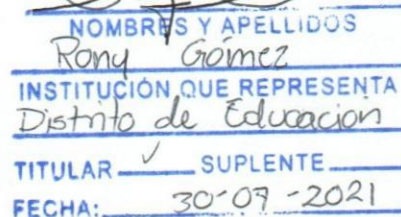 NOMBRES Y APELLIDOS
Rony Gómez
INSTITUCIÓN QUE REPRESENTA
Distrito de Educación
TITULAR ✓ SUPLENTE
FECHA: 30-07-2021